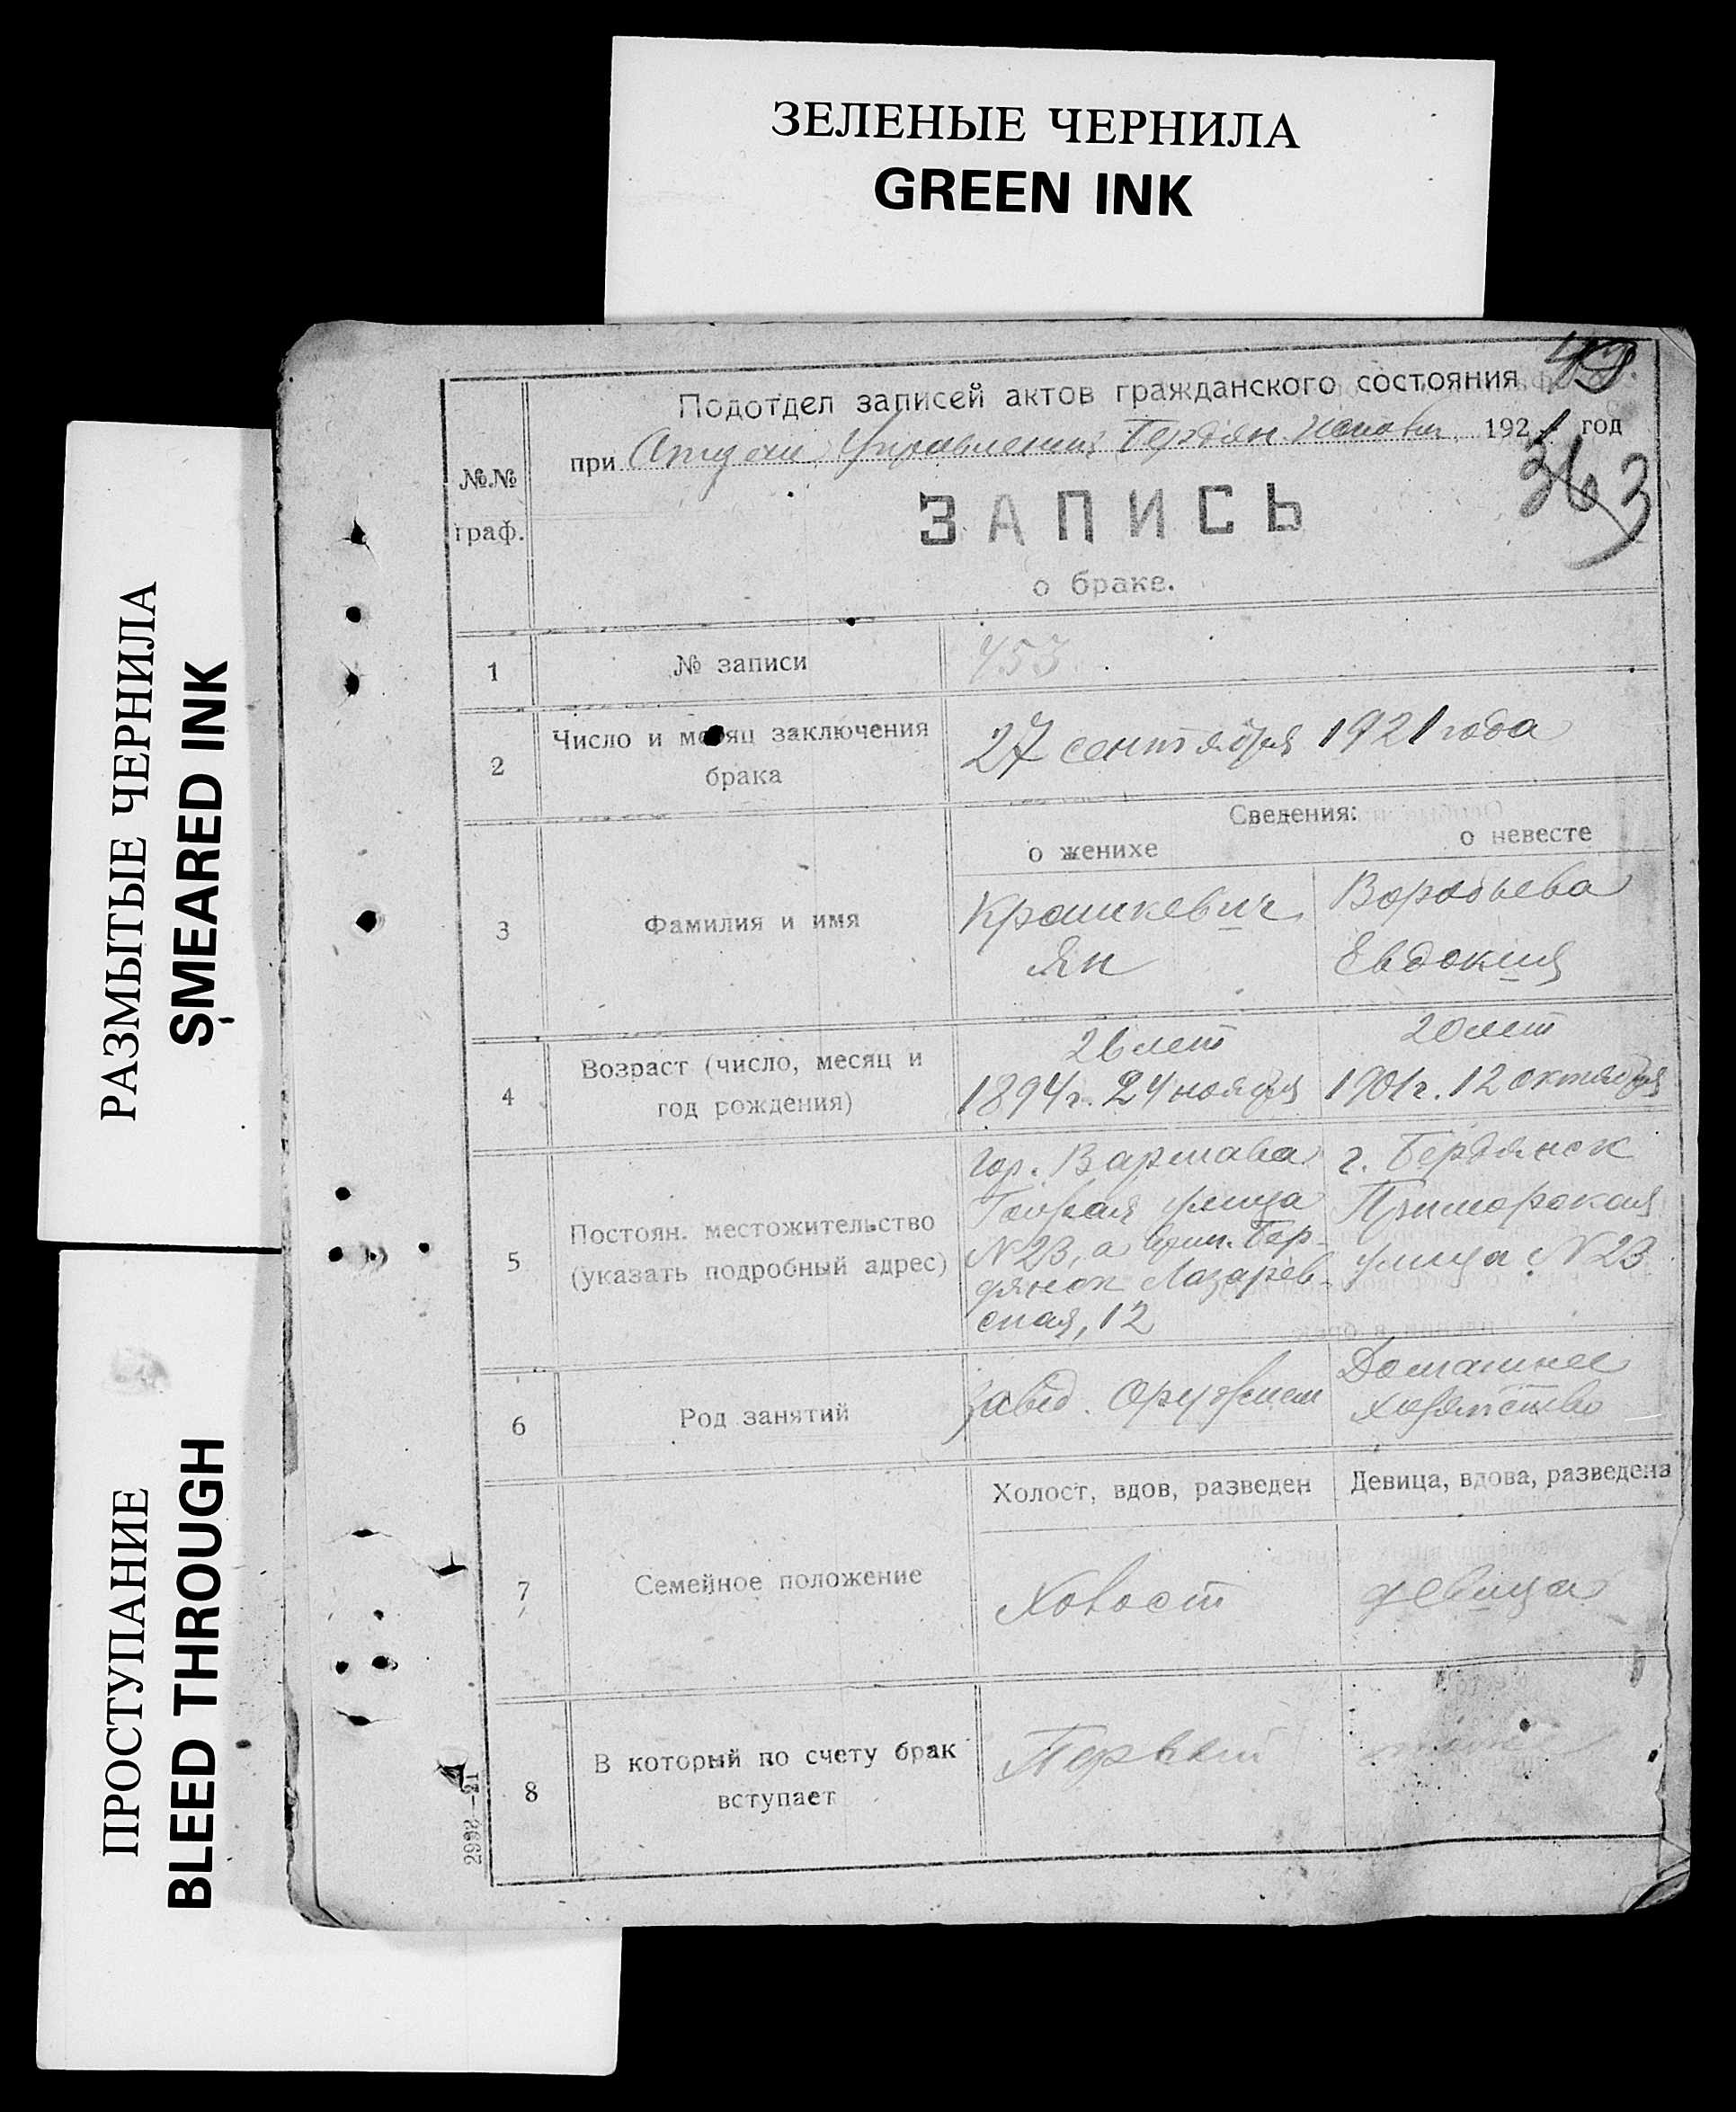 ЗЕЛЕНЫЕ ЧЕРНИЛА
GREEN INK
РАЗМЫТЫЕ ЧЕРНИЛА
SMEARED INK
ПРОСТУПАНИЕ
BLEED THROUGH
Подотдел записей актов гражданского состояния
при Отдел Управления Бердян. 1921 год
363
№.№
граф.
ЗАПИСЬ
о браке.
1
№ записи
453
2
Число и месяц заключения
брака
27 сентября 1921 года
Сведения:
о женихе
о невесте
3
Фамилия и имя
Крошкевич
Ян
Воробьева
Евдокия
4
Возраст (число, месяц и
год рождения)
26 лет
1894 г. 24 ноября
20 лет
1901 г. 12 октября
5
Постоян. местожительство
(указать подробный адрес)
гор. Варшава
улица
N 23, а Бер-
дянск Лазарев-
ская, 12
г. Бердянск
Приморская
улица N 23
6
Род занятий
завед. Оружием
Домашнее
хозяйство
Холост, вдов, разведен
Девица, вдова, разведена
7
Семейное положение
Холост
девица
8
В который по счету брак
вступает
Первый
2992—21